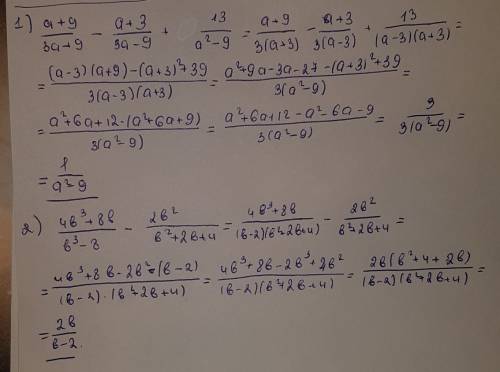 1) (a+9)/(3a+9) - (a+3)/(3a-9) + 13/(a²-9) = (a+9)/(3(a+3)) - (a+3)/(3(a-3)) + 13/((a-3)(a+3)) =
= ((a-3)(a+9)-(a+3)²+39)/(3(a-3)(a+3)) = (a²+9a-3a-27-(a+3)²+39)/(3(a²-9)) =
= (a²+6a+12-(a²+6a+9))/(3(a²-9)) = (a²+6a+12-a²-6a-9)/(3(a²-9)) = 3/(3(a²-9)) =
= 1/(a²-9)
2) (4b³+8b)/(b³-8) - 2b²/(b²+2b+4) = (4b³+8b)/((b-2)(b²+2b+4)) - 2b²/(b²+2b+4) =
= (4b³+8b-2b²·(b-2))/((b-2)·(b²+2b+4)) = (4b³+8b-2b³+2b²)/((b-2)(b²+2b+4)) = (2b(b²+4+2b))/((b-2)(b²+2b+4)) =
= 2b/(b-2).